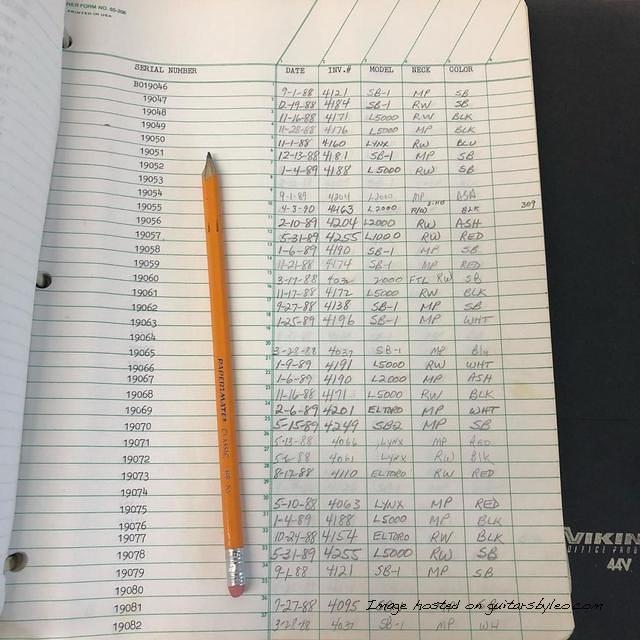 HER FORM NO. 65-206
PRINTED IN USA
SERIAL NUMBER DATE INV.# MODEL NECK COLOR
B019046 9-1-88 4121 SB-1 MP SB
19047 12-19-88 4184 SB-1 RW SB
19048 11-16-88 4171 L5000 RW BLK
19049 11-28-88 4176 L5000 MP BLK
19050 11-1-88 4160 LYNX RW BLU
19051 12-13-88 4181 SB-1 MP SB
19052 1-4-88 4188 L5000 RW SB
19053
19054 9-1-89 4204 L2000 MP ASH
19055 4-3-90 4463 L2000 R/W BLK 309
19056 2-10-89 4204 L2000 RW ASH
19057 5-31-89 4255 L1000 RW RED
19058 1-6-89 4190 SB-1 MP SB
19059 11-21-88 4174 SB-1 MP RED
19060 3-17-88 4032 2000 FTL RW SB
19061 11-17-88 4172 L5000 RW BLK
19062 9-27-88 4138 SB-1 MP SB
19063 1-25-89 4196 SB-1 MP WHT
19064
19065 3-28-88 4037 SB-1 MP
19066 1-9-89 4191 L5000 RW WHT
19067 1-6-89 4190 L2000 MP ASH
19068 11-16-88 4171 L5000 RW BLK
19069 2-6-89 4201 ELTORO MP WHT
19070 5-15-89 4249 SB2 MP SB
19071 5-13-88 4066 LYNX MP RED
19072 4061 LYNX RW BLK
19073 8-12-88 4110 ELTORO RW RED
19074
19075 5-10-88 4063 LYNX MP RED
19076 1-4-89 4188 L5000 MP BLK
19077 10-24-88 4154 ELTORO RW BLK
19078 5-31-89 4255 L5000 RW SB
19079 9-1-88 4121 SB-1 MP SB
19080
19081 7-27-88 4095
19082 3-28-88 4037 SB-1 MP WH
PAPERMATE CLASSIC HB
VIKIN
OFFICE PROD
44V
Image hosted on guitarsbyleo.com